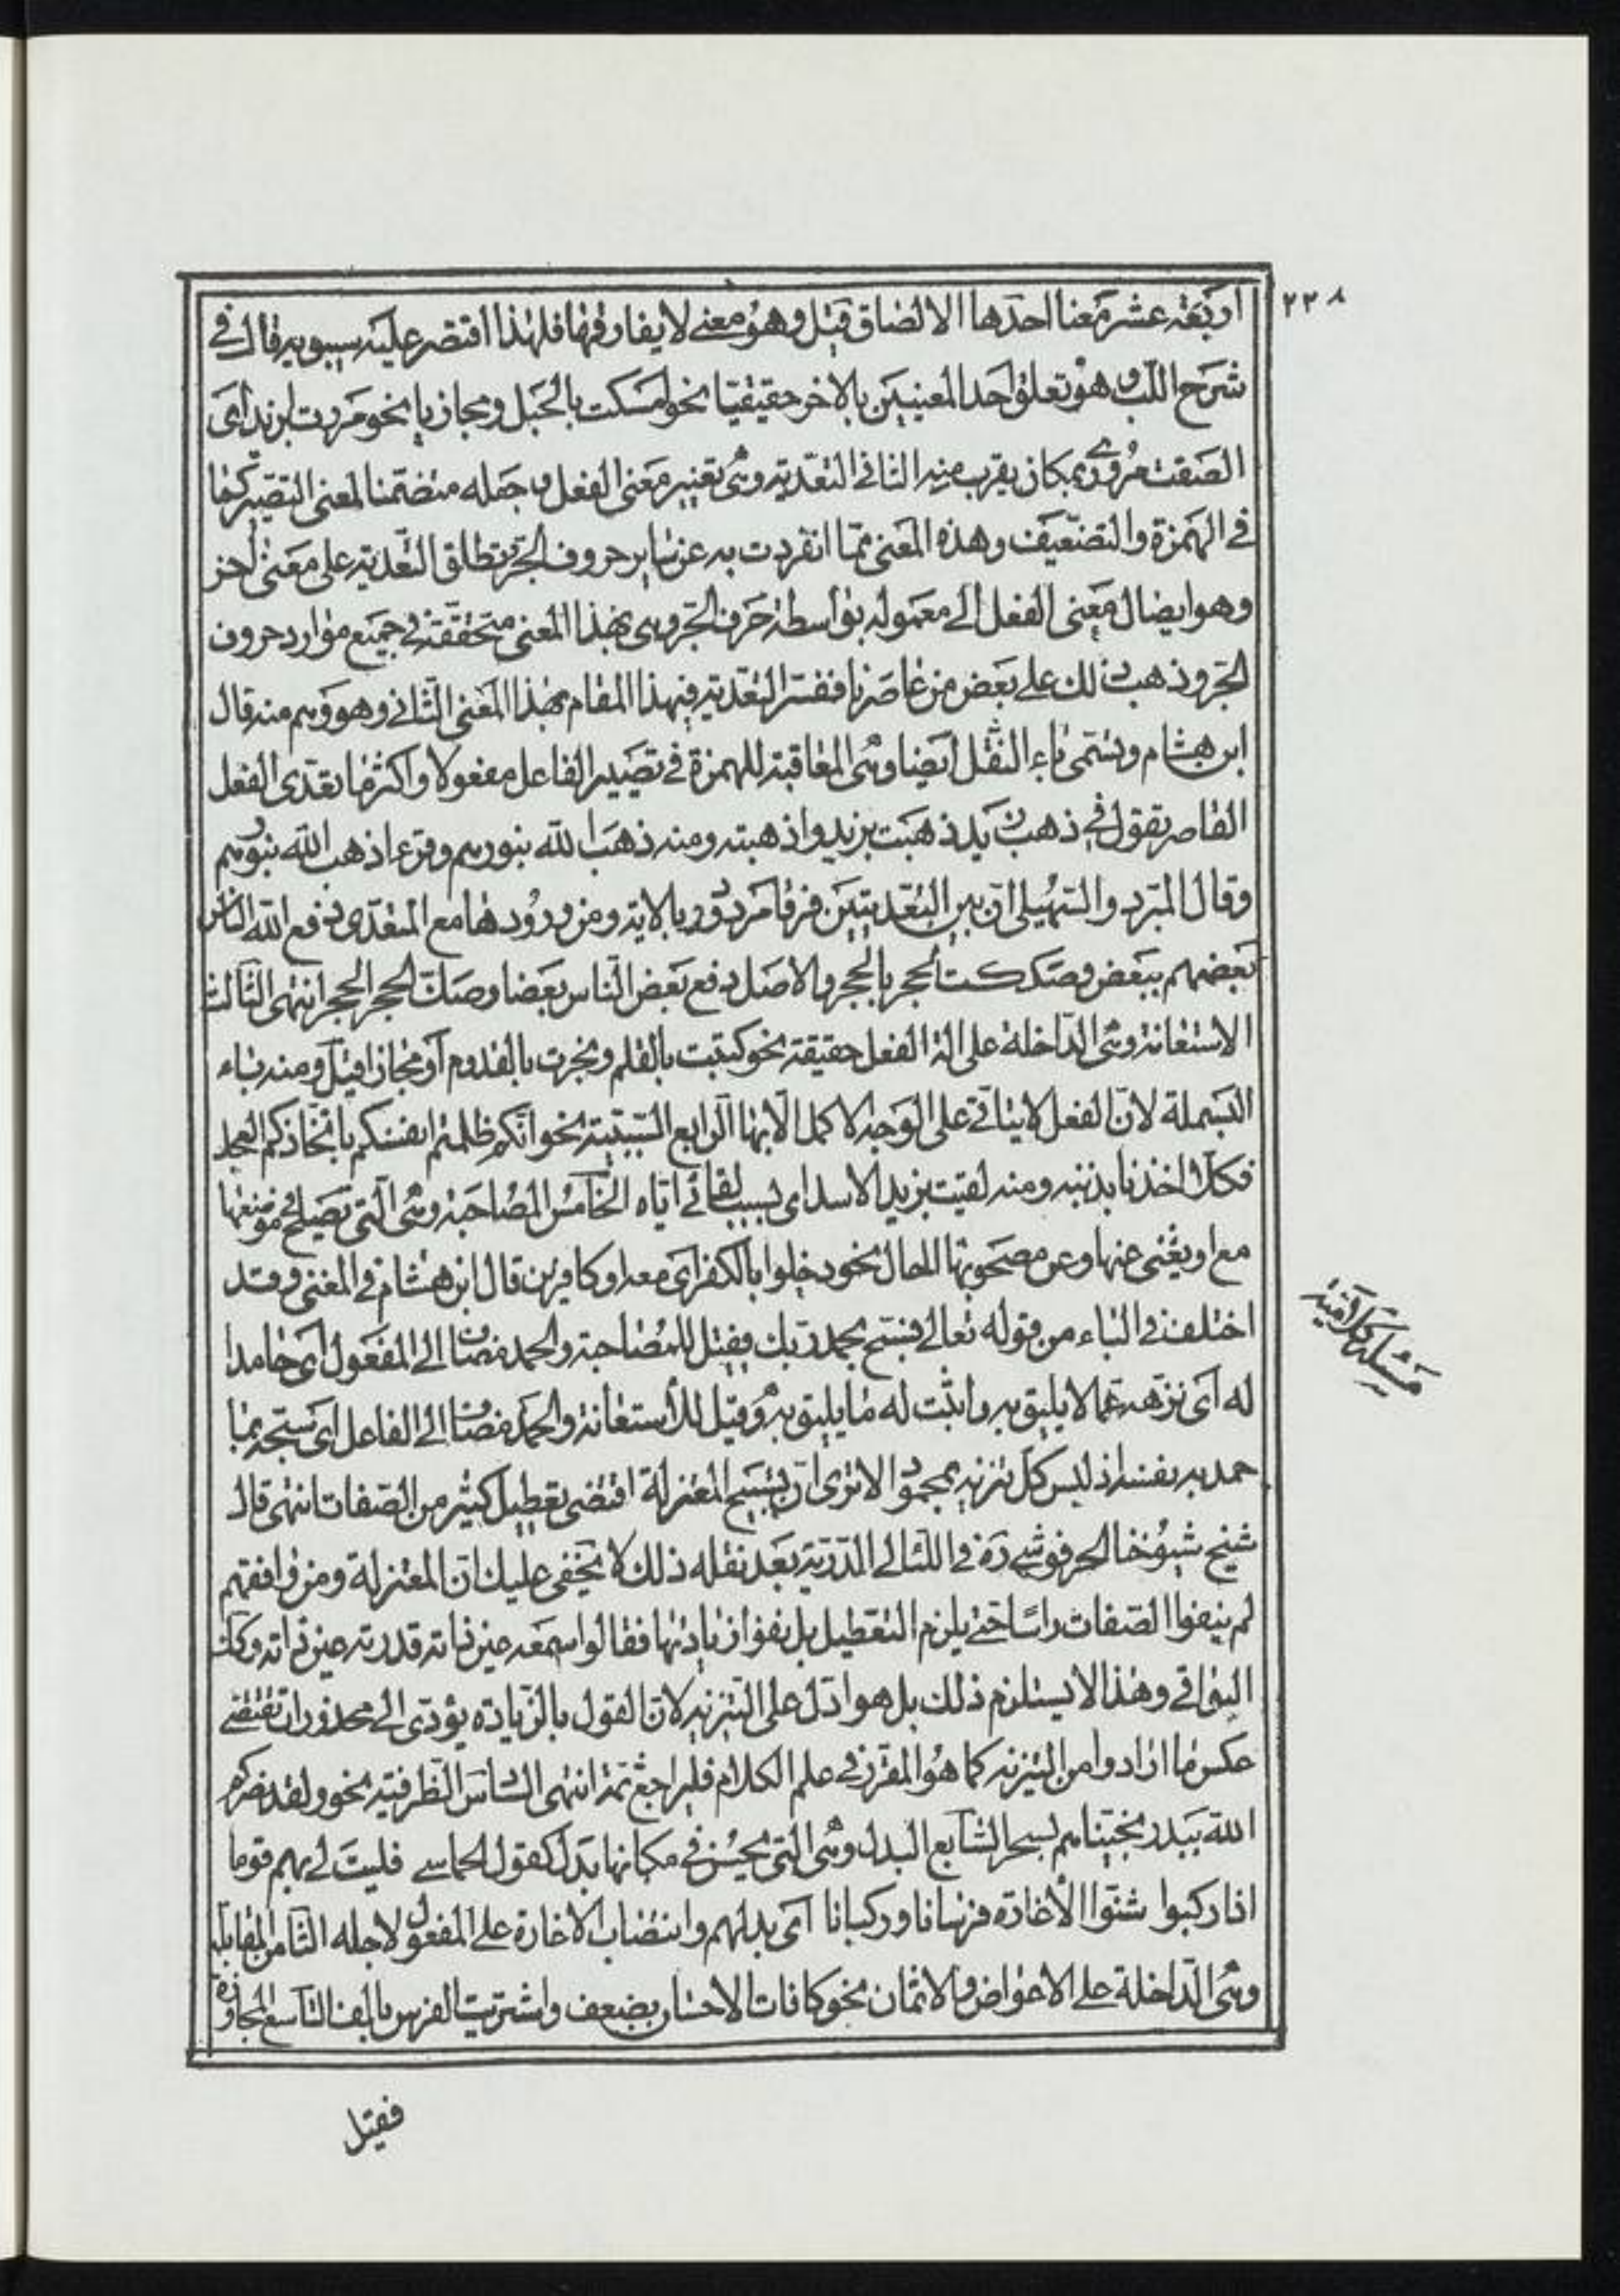 ٢٢٨
اربعة عشر معنا احدها الالصاق قيل وهو معنى لا يفارقها فلهذا اقتصر عليه سيبويه قال في
شرح اللب وهو تعلق احد المعنيين بالاخر حقيقيا نحو امسكت بالحبل ومجازيا نحو مررت بزيد اى
الصقت مرورى بمكان يقرب منه الثانى التعدية وهى تغيير معنى الفعل وجعله متضمنا لمعنى التصيير كما
في الهمزة والتضعيف وهذه المعنى مما انفردت به عن ساير حروف الجر وتطلق التعدية على معنى اخر
وهو ايصال معنى الفعل الى معموله بواسطة حرف الجر وهى بهذا المعنى متحققة في جميع موارد حروف
الجر وذهب ذلك على بعض من عاصرنا ففسر التعدية فى هذا المقام بهذا المعنى الثانى وهو وهم منه قال
ابن هشام وتسمى باء النقل ايضا وهى المعاقبة للهمزة في تصيير الفاعل مفعولا واكثر ما تعدى الفعل
القاصر تقول في ذهب زيد ذهبت بزيد واذهبته ومنه ذهب الله بنورهم وقرئ اذهب الله بنورهم
وقال المبرد والسهيلى ان بين التعديتين فرقا مردود بالاية ومن ورودها مع المتعدى دفع الله الناس
بعضهم ببعض وصككت الحجر بالحجر والاصل دفع بعض الناس بعضا وصك الحجر الحجر انتهى الثالث
الاستعانة وهى الداخلة على الة الفعل حقيقة نحو كتبت بالقلم ونجرت بالقدوم او مجازا قيل ومنه باء
البسملة لان الفعل لا يتاتى على الوجه الاكمل الا بها الرابع السببية نحو انكم ظلمتم انفسكم باتخاذكم العجل
فكلا اخذنا بذنبه ومنه لقيت بزيد الاسد اى بسبب لقائى اياه الخامس المصاحبة وهى التى تصلح في موضعها
مع او يغنى عنها وعن مصحوبها الحال نحو دخلوا بالكفر اى معه او كافرين قال ابن هشام في المغنى وقد
اختلف في الباء من قوله تعالى فسبح بحمد ربك فقيل للمصاحبة والحمد مضاف الى المفعول اى حامدا
له اى نزهه عما لا يليق به واثبت له ما يليق به وقيل للاستعانة والحمد مضاف الى الفاعل اى سبحه بما
حمد به نفسه اذ ليس كل تنزيه بمحمود الا ترى ان تسبيح المعتزلة اقتضى تعطيل كثير من الصفات انتهى قال
شيخ شيوخنا الحرفوشى ره في اللئالى الدرية بعد نقله ذلك لا يخفى عليك ان المعتزلة ومن وافقهم
لم ينفوا الصفات راسا حتى يلزم التعطيل بل نفوا زيادتها فقالوا سمعه عين ذاته قدرته عين ذاته وكذا
البواقى وهذا لا يستلزم ذلك بل هو ادل على التنزيه لان القول بالزيادة يؤدى الى محذورات تقتضى
عكس ما ارادوا من التنزيه كما هو المقرر في علم الكلام فليراجع ثمة انتهى السادس الظرفية نحو ولقد نصركم
الله ببدر نجيناهم بسحر السابع البدل وهى التى يحسن في مكانها بدل كقول الحماسى فليت لى بهم قوما
اذا ركبوا شنوا الاغارة فرسانا وركبانا اى بدلهم وانتصاب الاغارة على المفعول لاجله الثامن المقابلة
وهى الداخلة على الاعواض والاثمان نحو كافات الاحسان بضعف واشتريت الفرس بالف التاسع المجاوزة
فقيل
مسئلة كلامية